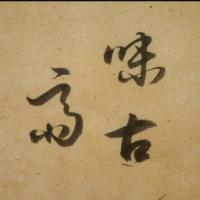 味古
齋